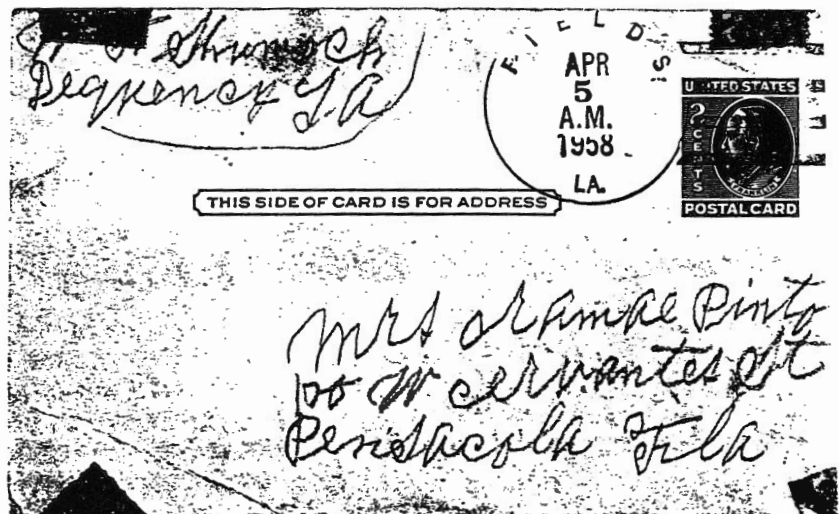 Dequency La
FIELDS
APR
5
A.M.
1958
LA.
UNITED STATES
2 CENTS
FRANKLIN
POSTAL CARD
THIS SIDE OF CARD IS FOR ADDRESS
Mrs Pinto
W Cervantes St
Pensacola Fla